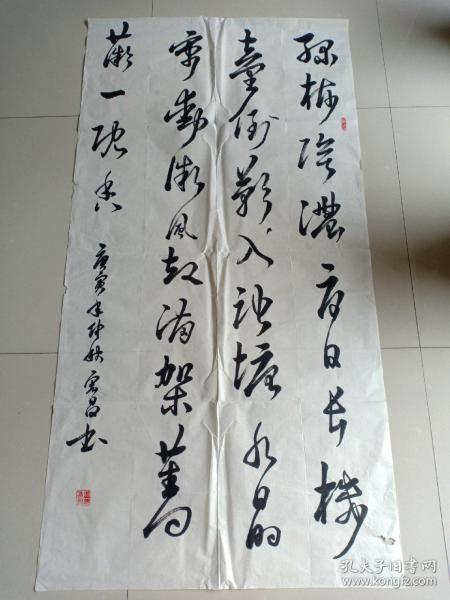 绿树阴濃夏日長楼
臺倒影入池塘水晶
帘動微風起满架薔
薇一院香
庚寅年仲秋昌书
孔夫子旧书网
www.kongfz.com